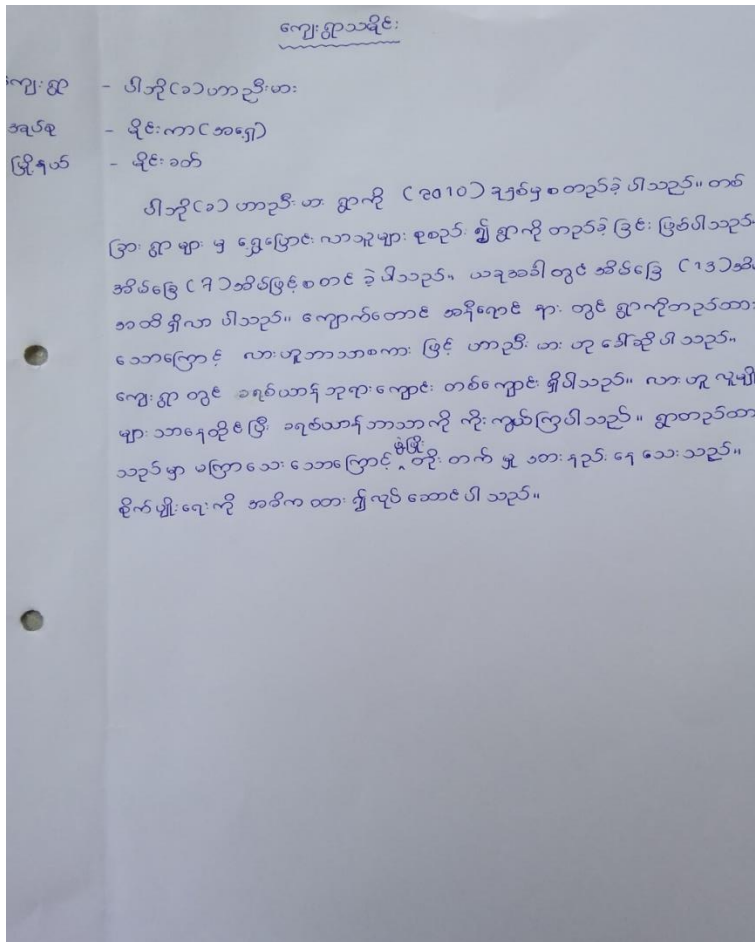 ကျေးရွာသမိုင်း
ကျေးရွာ - ပါဘို(ခ)ဟာညီးမား
အုပ်စု - မိုင်းကာ(အရှေ့)
မြို့နယ် - မိုင်းခတ်
ပါဘို(ခ)ဟာညီးမား ရွာကို (၂၀10) ခုနှစ်မှ စတည်ခဲ့ပါသည်။ တစ်
ခြားရွာများ မှ ရွှေ့ပြောင်းလာသူများ စုစည်း၍ ရွာကို တည်ခဲ့ခြင်း ဖြစ်ပါသည်။
အိမ်ခြေ (7)အိမ်ဖြင့် စတင် ခဲ့ပါသည်။ ယခုအခါတွင် အိမ်ခြေ (13)အိ
အထိရှိလာ ပါသည်။ ကျောက်တောင် အနီရောင် နား တွင် ရွာကိုတည်ထား
သောကြောင့် လားဟူဘာသာစကား ဖြင့် ဟာညီးမား ဟု ခေါ်ဆိုပါသည်။
ကျေးရွာ တွင် ခရစ်ယာန် ဘုရားကျောင်း တစ်ကျောင်း ရှိပါသည်။ လားဟူ လူမျိ
များ သာနေထိုင်ပြီး ခရစ်ယာန်ဘာသာကို ကိုးကွယ်ကြပါသည်။ ရွာတည်ထာ
သည်မှာ မကြာသေး သောကြောင့် ဖွံ့ဖြိုး တိုးတက် မှု အားနည်း နေ သေးသည်။
စိုက်ပျိုးရေးကို အဓိက ထား၍လုပ် ဆောင်ပါ သည်။